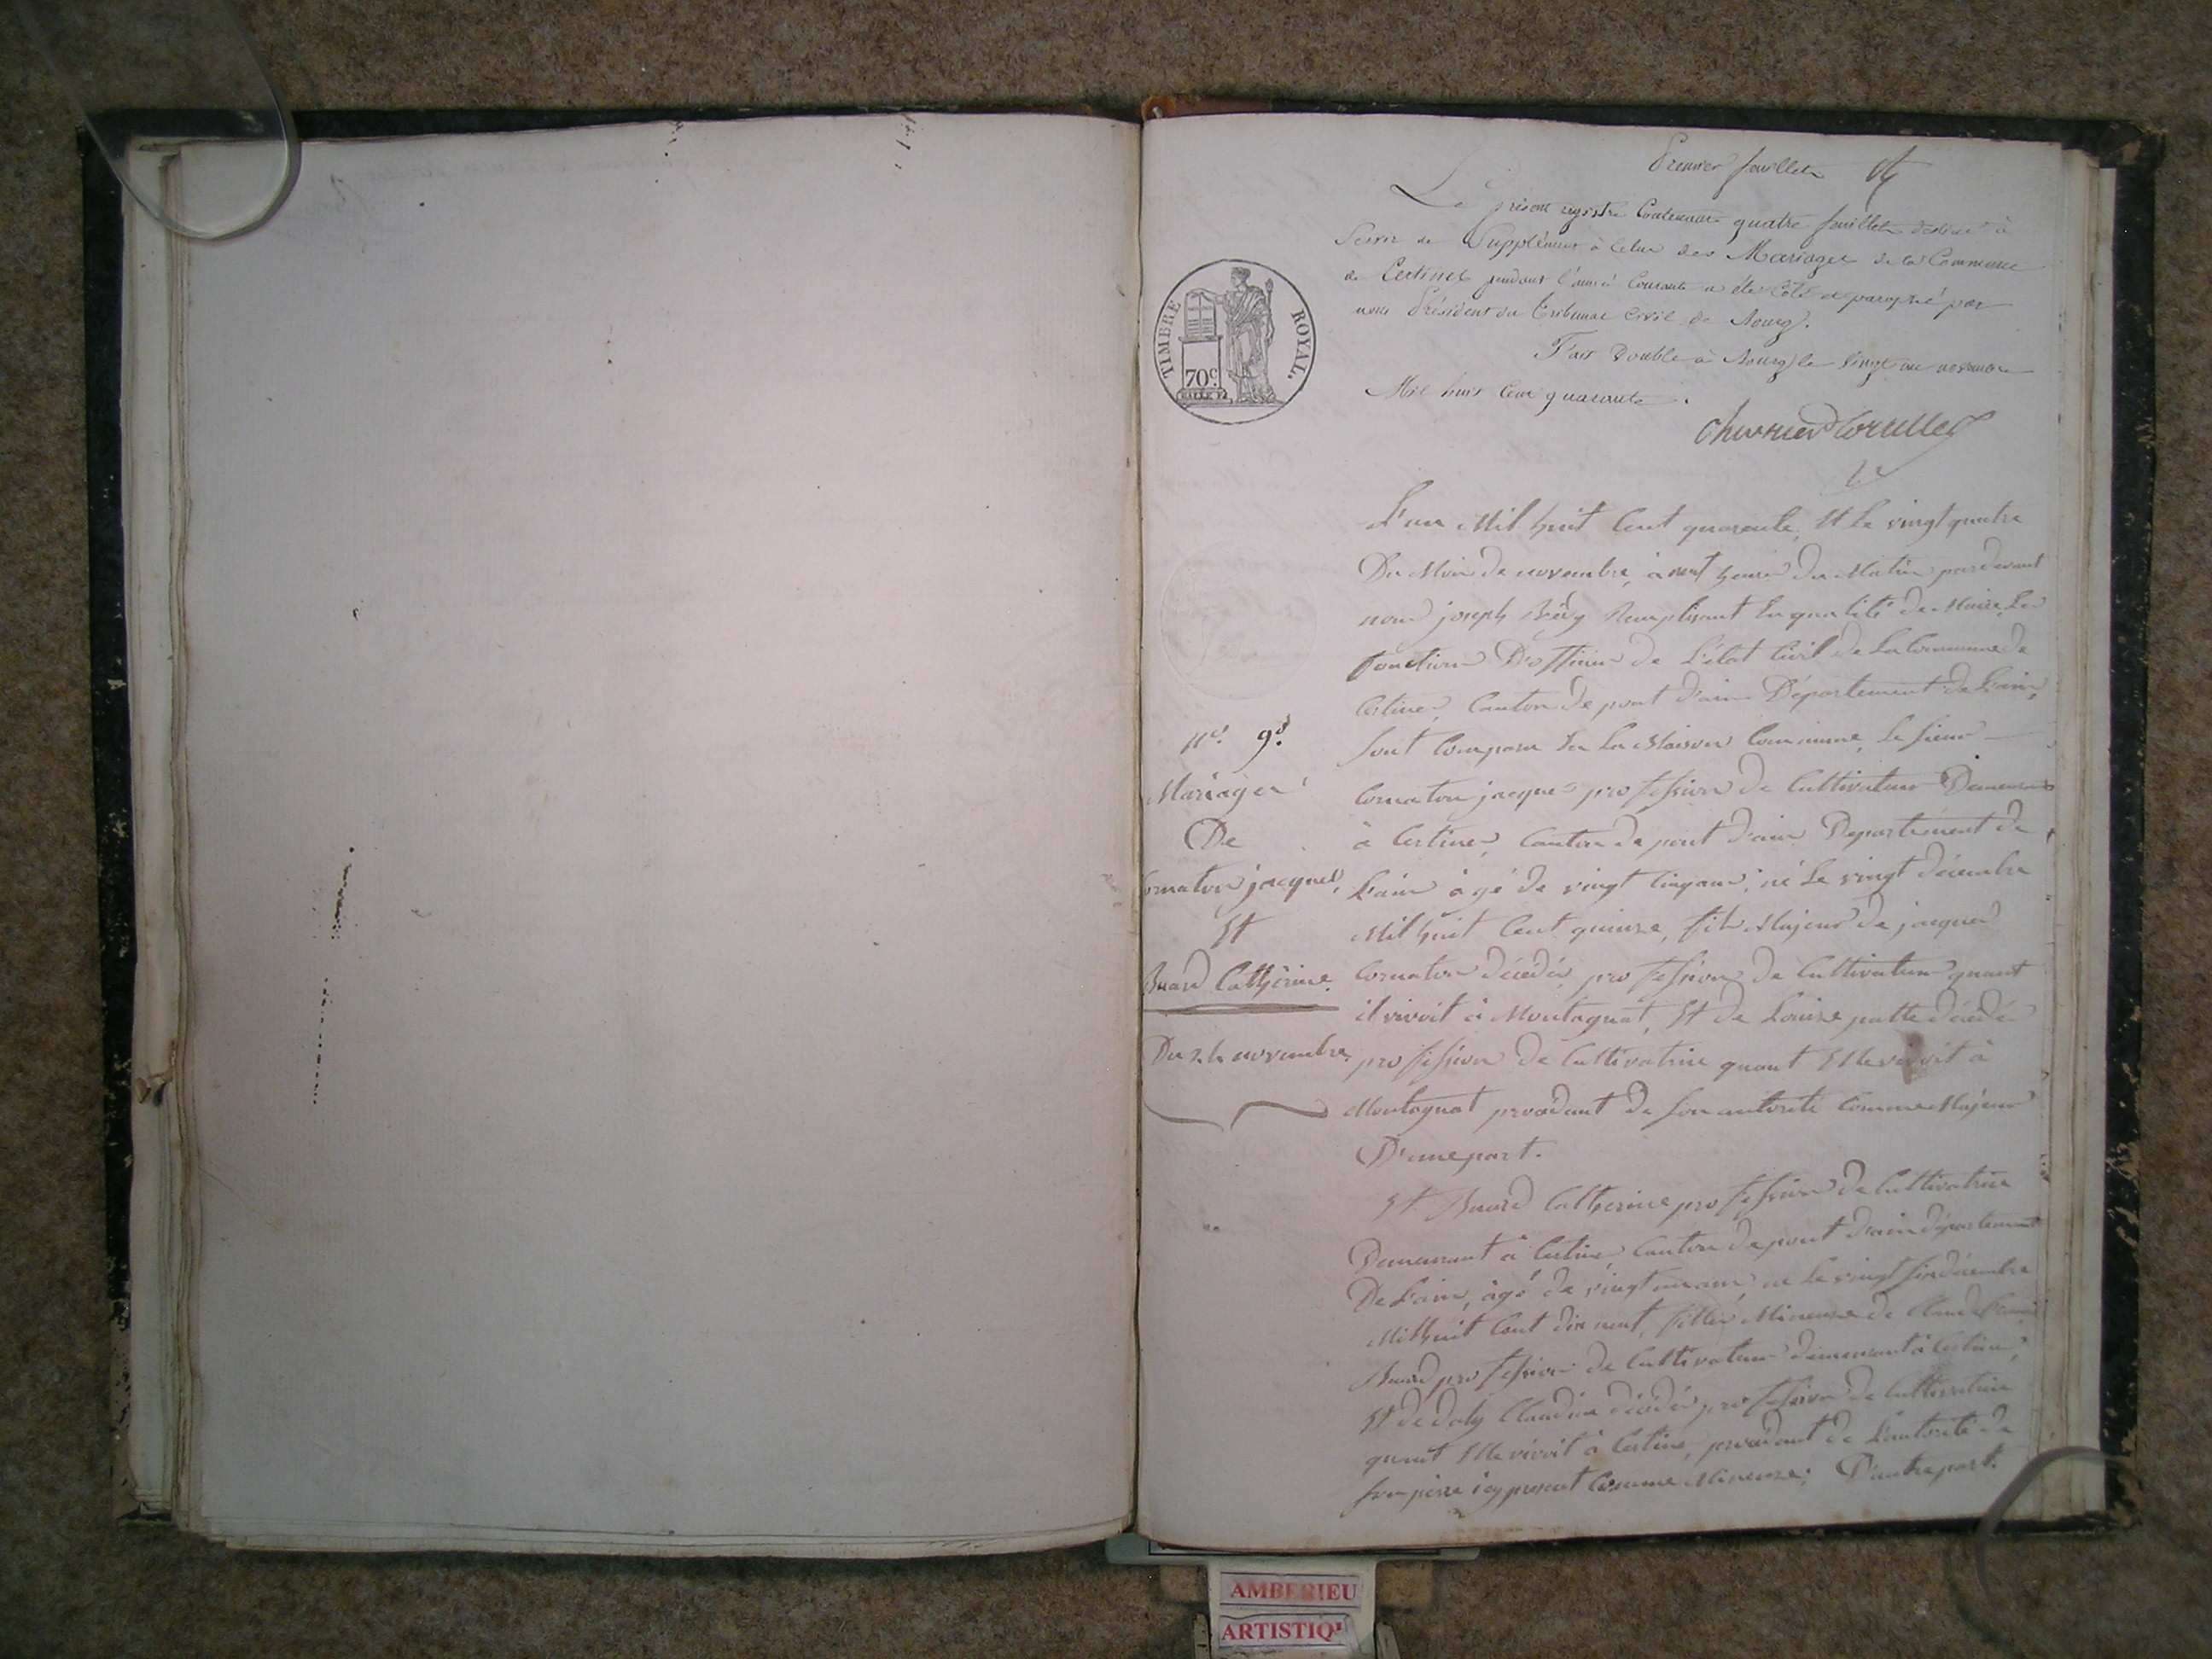 Premier feuillet
Le présent registre Contenant quatre feuillets destiné à
Servir de Supplément à Celui des Mariages de la Commune
de Certines pendant l'année Courante a été Coté et paraphé par
nous Président du tribunal Civil de Bourg.
Fait Double à Bourg le vingt un novembre
Mil huit Cent quarante.
TIMBRE ROYAL.
70C.
L'an Mil huit Cent quarante, Et le vingt quatre
Du Mois de novembre, à neuf heures du Matin pardevant
nous joseph Remplissant En qualité de Maire Les
fonctions D'officier de L'état Civil de La Commune de
Certines, Canton de pont d'ain Département de L'ain,
Sont Comparu En La Maison Commune, Le sieur
nº. 9º.
Mariages
De
Cornaton jacques,
Et
Buard Catherine.
Du 24 novembre.
Cornaton jacques profession de Cultivateur Demeurant
à Certines, Canton de pont d'ain Departement de
L'ain âgé de vingt Cinq ans, né Le vingt décembre
Mil huit Cent quinze, fils Majeur de jacques
Cornaton décédés, profession de Cultivateur quant
il vivoit à Montagnat, Et de Louise patte décédé
profession de Cultivatrice quant Elle vivoit à
Montagnat procédant de son autorité Comme Majeur
D'une part.
Et Buard Catherine profession de Cultivatrice
Demeurant à Certines, Canton de pont d'ain département
De L'ain, âgé de vingt un ans, né Le vingt décembre
Mil huit Cent dix neuf, filles Mineure de Claude
Buard profession de Cultivateur demeurant à Certines,
Et de Claudine décédés profession de Cultivatrice
quant Elle vivoit à Certines, procédant de L'autorité de
son père icy présent Comme Mineure; D'autre part.
AMBERIEU
ARTISTIQ